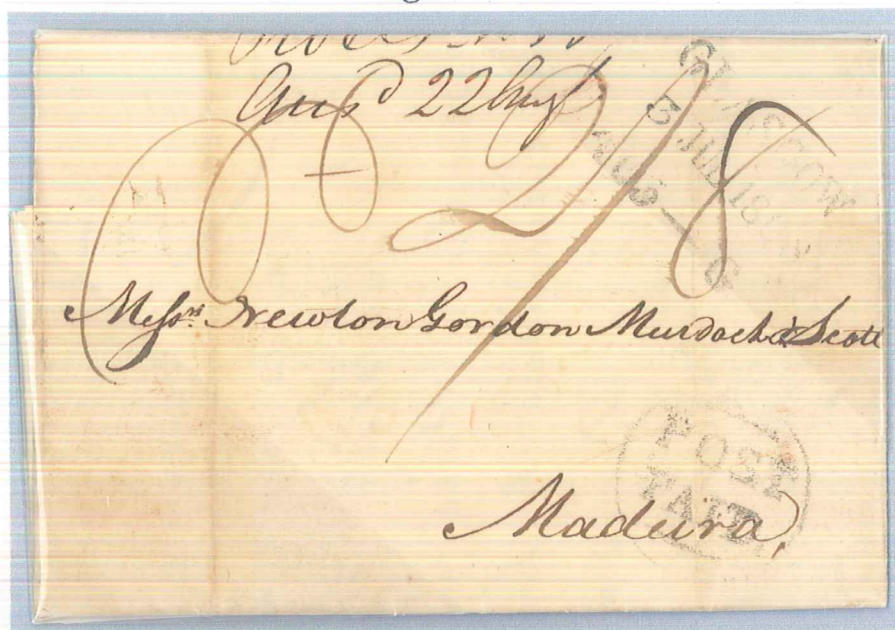 Ans^d 22 Aug^t
2/8
GLASGOW
5 JUL 18
405 — G
Mess^rs Newton Gordon Murdoch & Scott
POST
PAID
Madeira,